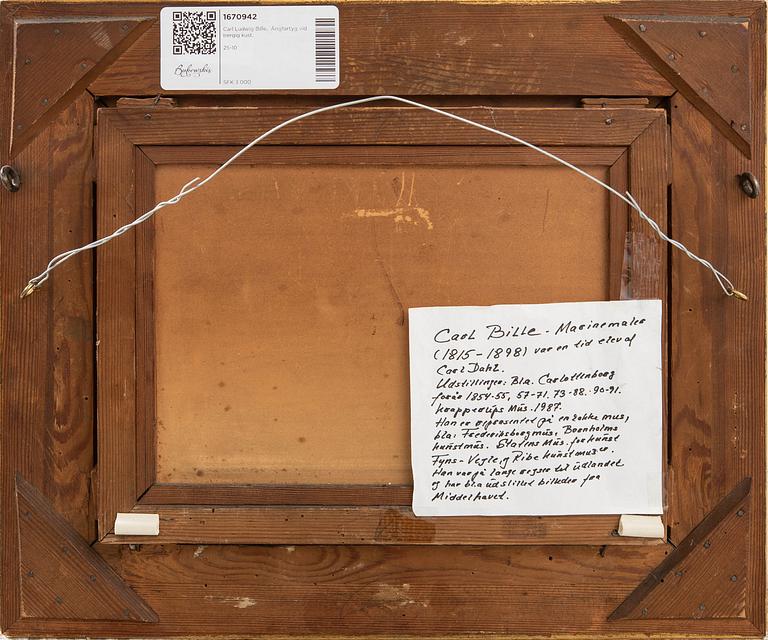 1670942
Carl Ludwig Bille, Ångfartyg vid
bergig kust.
25-10
Bukowskis
SEK 3 000
Carl Bille - Marinemaler
(1815-1898) var en tid elev af
Carl Dahl.
Udstillinger: Bla. Carlottenborg
1854-55, 57-71, 73-88-90-91.
Mus. 1987.
Han er på en række mus,
bla: Frederiksborgmus, Bornholms
kunstmus. Statens Mus. for kunst
Fyns- Vejle og Ribe kunstmuseer.
Han var på lange rejser til udlandet
og har bla udstillet billeder fra
Middelhavet.